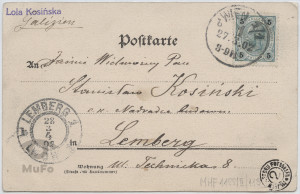 Lola Kosińska
Galizien
Postkarte
WIEN
27
02
An: Jaśnie Wielmożny Pan
Stanisław Kosiński
c.k. Nadradca budown.
in
Lemberg
LEMBERG 2
28
02
LWÓW
MuFo
Wohnung
(Straße und Hausnummer)
ul. Technicka 8